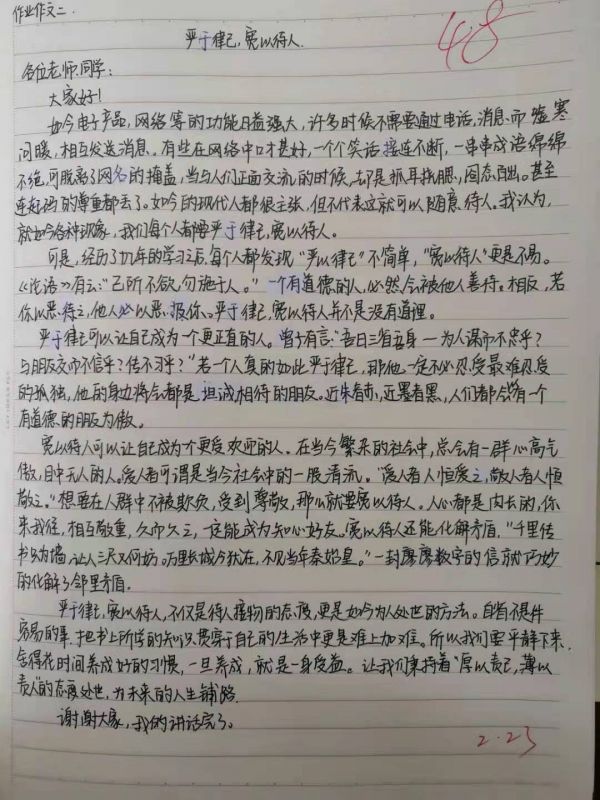 作业作文二.
48
严于律己,宽以待人.
各位老师.同学:
大家好!
如今电子产品,网络等的功能日益强大,许多时候不需要通过电话,消息而嘘寒
问暖,相互发送消息。有些在网络中口才甚好,一个个笑话接连不断,一串串成语绵绵
不绝,可脱离了网名的掩盖,当与人们正面交流的时候,却是抓耳挠腮,囧态百出。甚至
连起码的尊重都丢了。如今的现代人都很主张,但不代表这就可以随意待人。我认为,
就如今各种现象,我们每个人都要严于律己,宽以待人。
可是,经历了几年的学习之后,每个人都发现"严以律己"不简单,"宽以待人"更是不易。
《论语》有云:"己所不欲,勿施于人。"一个有道德的人,必然会被他人善待。相反,若
你以恶待之,他人必以恶报你。严于律己,宽以待人并不是没有道理。
严于律己可以让自己成为一个更正直的人。曾子有言:"吾日三省吾身—为人谋而不忠乎?
与朋友交而不信乎?传不习乎?"若一个人真的如此严于律己,那他一定不必忍受最难忍受
的孤独,他的身边将会都是坦诚相待的朋友。近朱者赤,近墨者黑,人们都会以有一个
有道德的朋友为傲。
宽以待人可以让自己成为个更受欢迎的人。在当今繁杂的社会中,总会有一群心高气
傲,目中无人的人。爱人者可谓是当今社会中的一股清流。"爱人者人恒爱之,敬人者人恒
敬之。"想要在人群中不被欺负,受到尊敬,那么就要宽以待人。人心都是肉长的,你
来我往,相互敬重,久而久之,一定能成为知心好友。宽以待人还能化解矛盾,"千里传
书只为墙,让人三尺又何妨。万里长城今犹在,不见当年秦始皇。"一封廖廖数字的信就巧妙
的化解了邻里矛盾.
严于律己,宽以待人,不仅是待人接物的态度,更是如今为人处世的方法。自省不是件
容易的事,把书上所学的知识贯穿于自己的生活中更是难上加难。所以我们要平静下来,
舍得花时间养成好的习惯,一旦养成,就是一身受益。让我们秉持着"厚以责己,薄以
责人"的态度处世,为未来的人生铺路.
谢谢大家,我的讲话完了。
2.23